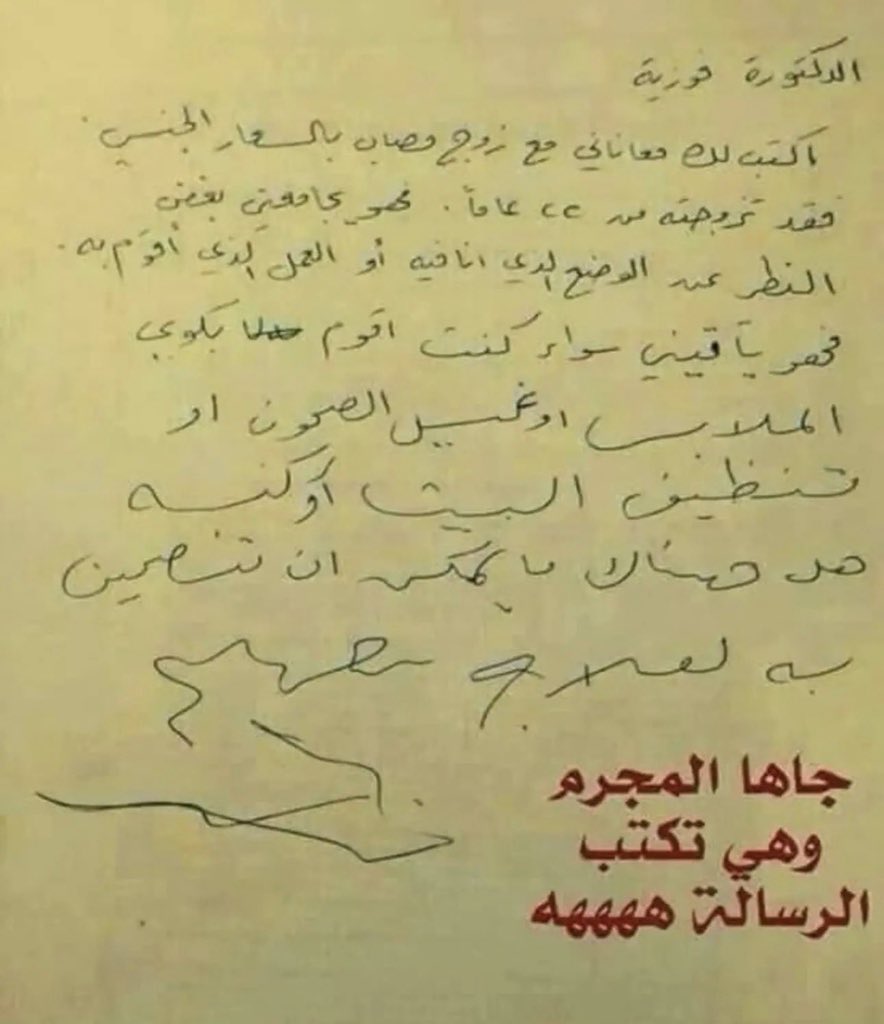 الدكتورة فوزية
اكتب لك معاناتي مع زوجي مصاب بالسعار الجنسي.
فقد تزوجته من ٢٢ عاماً. فهو يجامعني بغض
النظر عن الوضع الذي انا فيه أو العمل الذي أقوم به.
فهو يأتيني سواء كنت اقوم بكوي
الملابس او غسيل الصحون او
تنظيف البيت أو كنسه
هل هناك ما يمكن ان تنصحين
به لعلاج
جاها المجرم
وهي تكتب
الرسالة ههههه